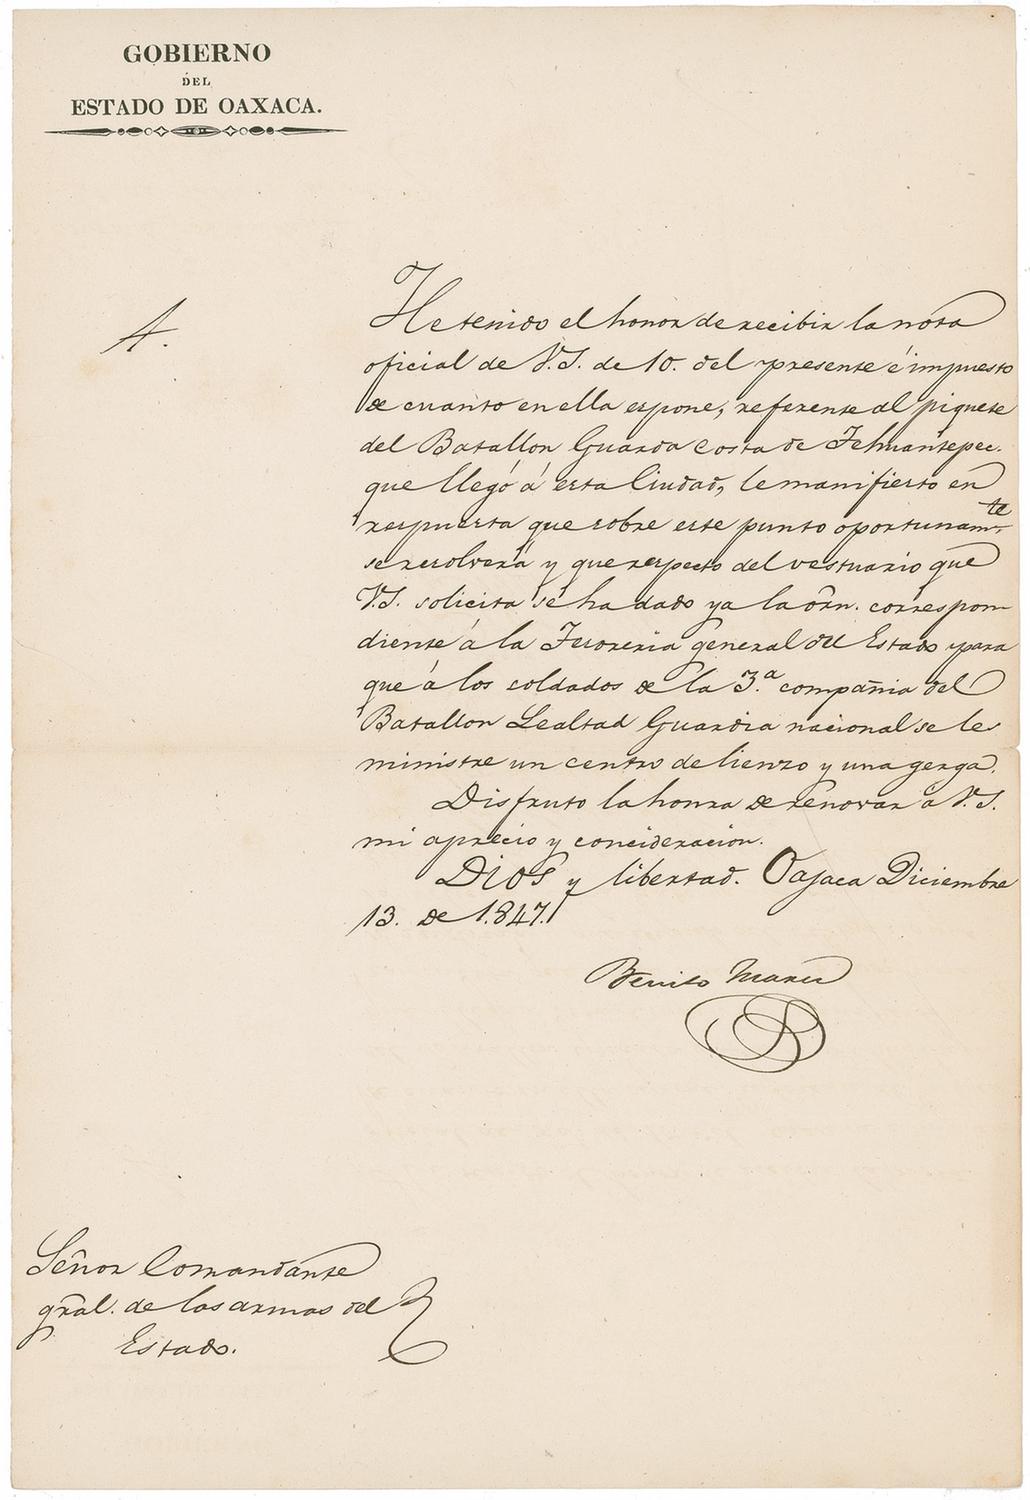 GOBIERNO
DEL
ESTADO DE OAXACA.
A.
He tenido el honor de recibir la nota
oficial de V.S. de 10. del presente é impuesto
de cuanto en ella espone, referente al piquete
del Batallon Guarda costa de Tehuantepec.
que llegó á esta Ciudad, le manifiesto en
respuesta que sobre este punto oportunamte
se resolverá y que respecto del vestuario que
V.S. solicita se ha dado ya la órn. correspon
diente á la Tesoreria general del Estado para
que á los soldados de la 3.a compañia del
Batallon Lealtad Guardia nacional se les
ministre un centro de lienzo y una gerga.
Disfruto la honra de renovar á V.S.
mi aprecio y concideracion.
DIOS y libertad. Oajaca Diciembre
13. de 1.847.
Benito
Señor Comandante
gral. de las armas del
Estado.